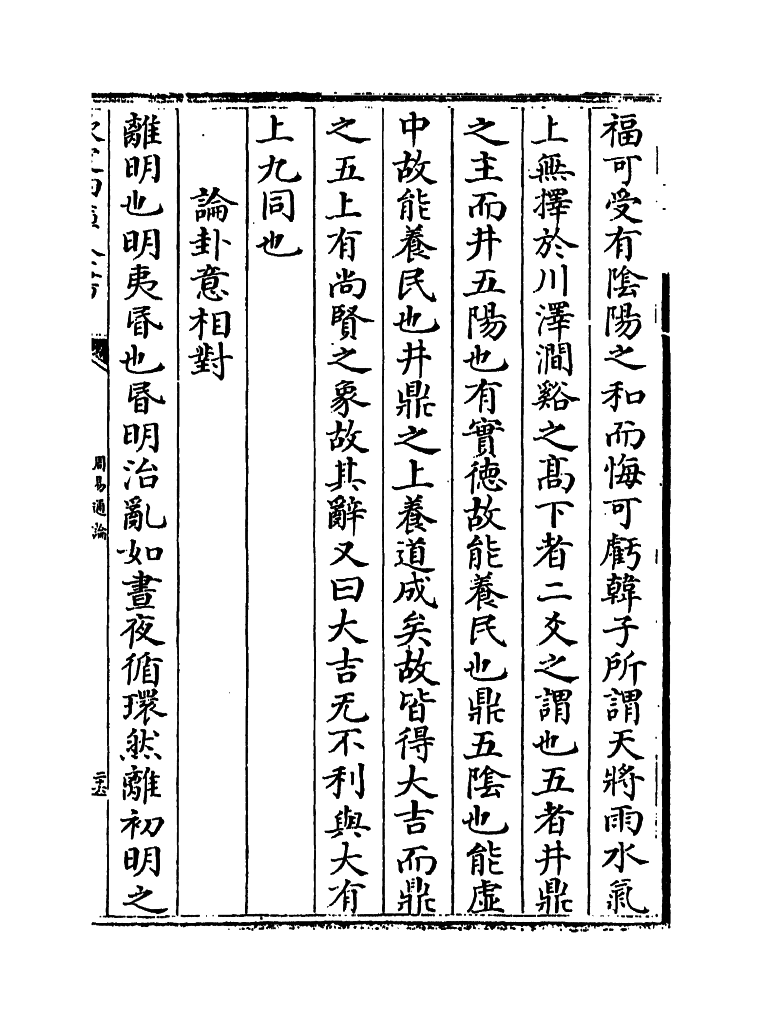 福可受有陰陽之和而悔可虧韓子所謂天將雨水氣
上無擇於川澤澗谿之髙下者二爻之謂也五者井鼎
之主而井五陽也有實徳故能養民也鼎五陰也能虚
中故能養民也井鼎之上養道成矣故皆得大吉而鼎
之五上有尚賢之象故其辭又曰大吉无不利與大有
上九同也
論卦意相對
離明也明夷昬也昬明治亂如晝夜循環然離初明之
周易通論